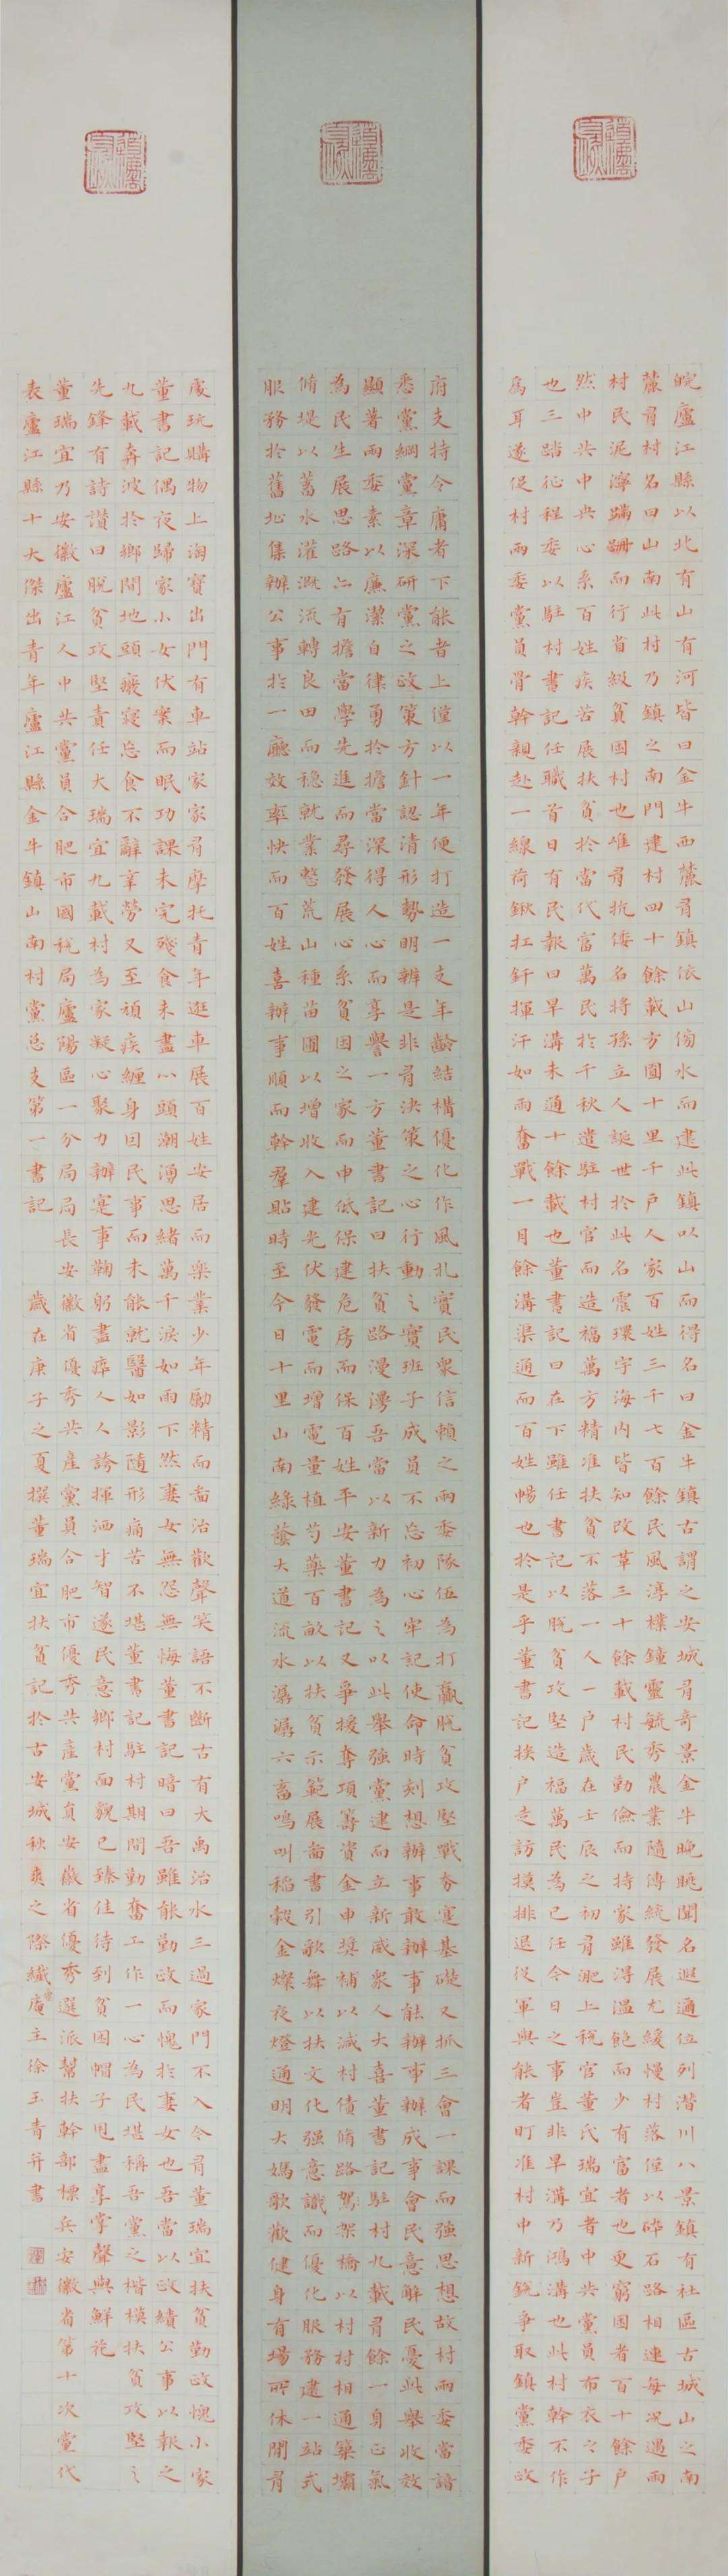 皖廬江縣以北有山有河皆曰金牛西麓有鎮依山傍水而建此鎮以山而得名曰金牛鎮古謂之安城有奇景金牛晚眺聞名遐邇位列潛川八景鎮有社區古城山之南
麓有村名曰山南此村乃鎮之南門建村四十餘載方圓十里千戶人家百姓三千七百餘民風淳樸鐘靈毓秀農業隨傳統發展尤緩慢村落僅以碎石路相連每況遇雨
村民泥濘蹣跚而行省級貧困村也唯有抗倭名將孫立人誕世於此名震環宇海內皆知改革三十餘載村民勤儉而持家雖得溫飽而少有富者也更窮困者百十餘戶
然中共中央心系百姓疾苦展扶貧於當代富萬民於千秋遣駐村官而造福萬方精准扶貧不落一人一戶歲在壬辰之初有淝上稅官董氏瑞宜者中共黨員布衣之子
也三踏征程委以駐村書記任職首日有民報曰旱溝未通十餘載也董書記曰在下雖任書記以脫貧攻堅造福萬民為己任今日之事豈非旱溝乃鴻溝也此村幹不作
為耳遂促村兩委黨員骨幹親赴一線荷鍬扛釬揮汗如雨奮戰一月餘溝渠通而百姓暢也於是乎董書記挨戶走訪摸排退役軍與能者盯准村中新銳爭取鎮黨委政
府支持令庸者下能者上僅以一年便打造一支年齡結構優化作風扎實民衆信賴之兩委隊伍為打贏脫貧攻堅戰夯寔基礎又抓三會一課而強思想故村兩委當諳
悉黨綱黨章深研黨之政策方針認清形勢明辨是非有決策之心行動之實班子成員不忘初心牢記使命時刻想辦事敢辦事能辦事辦成事會民意解民憂此舉收效
顯著而委素以廉潔自律勇於擔當深得人心而享譽一方董書記曰扶貧路漫漫吾當以新力為之以此舉強黨建而立新威衆人大喜董書記駐村九載有餘一身正氣
為民生展思路亦有擔當學先進而尋發展心系貧困之家而申低保建危房而保百姓平安董書記又爭援奪項籌資金申獎補以減村債脩路駕架橋以村村相通築壩
脩堤以蓄水灌溉流轉良田而穩就業整荒山種苗圃以增收入建光伏發電而增電量植芍藥百畝以扶貧示範展畵書引歌舞以扶文化强意識而優化服務建一站式
服務於舊址集辦公事於一廳效率快而百姓喜辦事順而幹羣貼時至今日十里山南綠蔭大道流水潺潺六畜鳴叫稻穀金燦夜燈通明大媽歌歡健身有場所休閒有
處玩購物上淘寶出門有車站家家有摩托青年逛車展百姓安居而樂業少年勵精而畵治歡聲笑語不斷古有大禹治水三過家門不入今有董瑞宜扶貧勤政愧小家
董書記偶夜歸家小女伏案而眠功課未完殘食未盡心頭潮湧思緒萬千淚如雨下然妻女無怨無悔董書記暗曰吾雖能勤政而愧於妻女也吾當以政績公事以報之
九載奔波於鄉間地頭癈寢忘食不辭辛勞又至頑疾纏身因民事而未能就醫如影隨形痛苦不堪董書記駐村期間勤奮工作一心為民堪稱吾黨之楷模扶貧攻堅之
先鋒有詩讚曰脫貧攻堅責任大瑞宜九載村為家凝心聚力辦寔事鞠躬盡瘁人人誇揮洒才智遂民意鄉村面貌已臻佳待到貧困帽子甩盡享掌聲與鮮花
董瑞宜乃安徽廬江人中共黨員合肥市國稅局廬陽區一分局局長安徽省優秀共產黨員合肥市優秀共產黨員安徽省優秀選派幫扶幹部標兵安徽省第十次黨代
表廬江縣十大傑出青年廬江縣金牛鎮山南村黨总支第一書記 歲在庚子之夏撰董瑞宜扶貧記於古安城秋爽之際纖庵主徐玉青并書